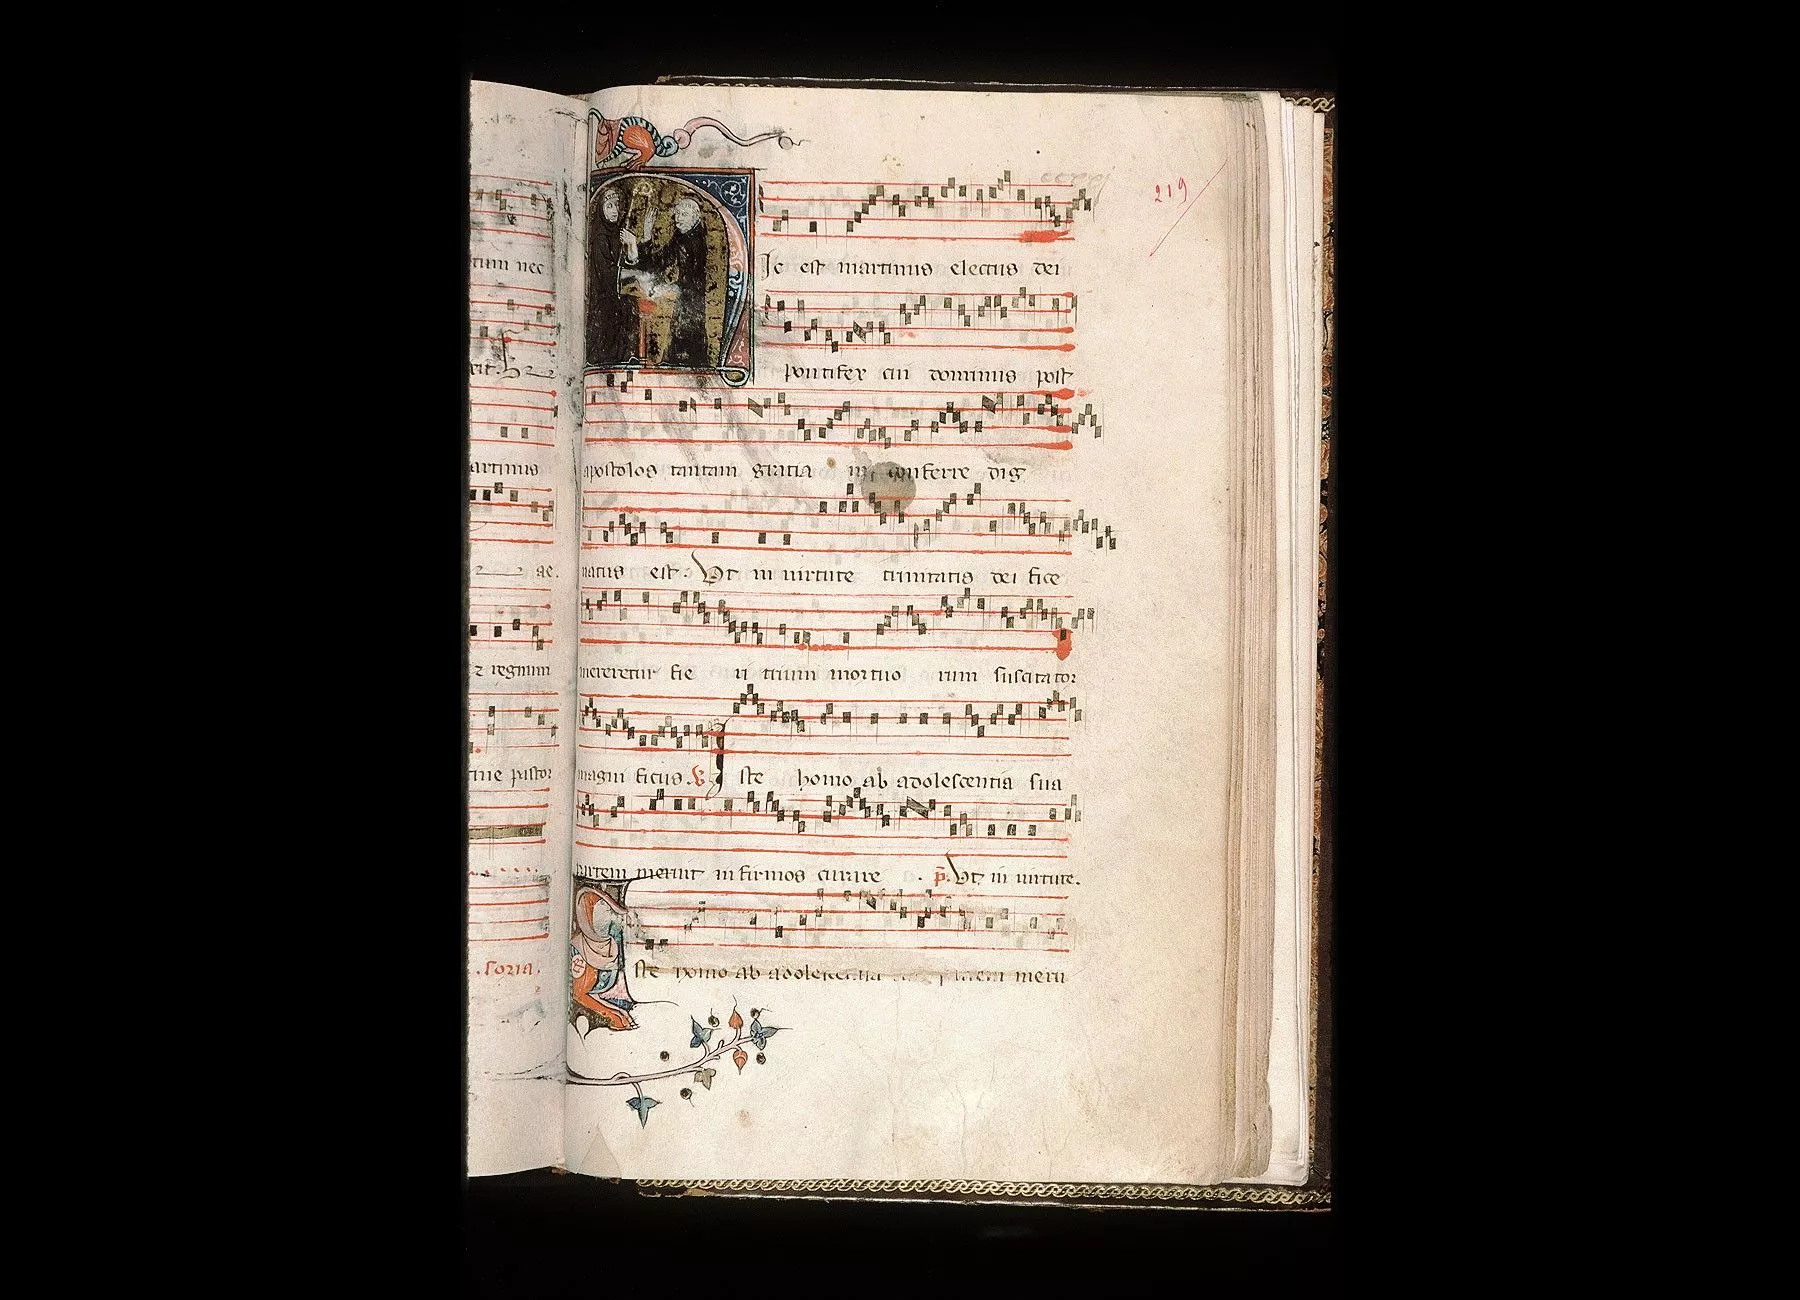 tum nec
artinus
ae.
z regnum
tine pastor
.foria.
219
Ic est martinus electus dei
pontifex cui dominus post
apostolos tantam gratia m conferre dig
natus est. Vt in uirtute trinitatis dei fice
mereretur fie ri trium mortuo rum suscitator
magni ficus. ℣ Iste homo ab adolescentia sua
partem meruit infirmos curare . p̄. Vt in uirtute.
ste homo ab adolescentia meru